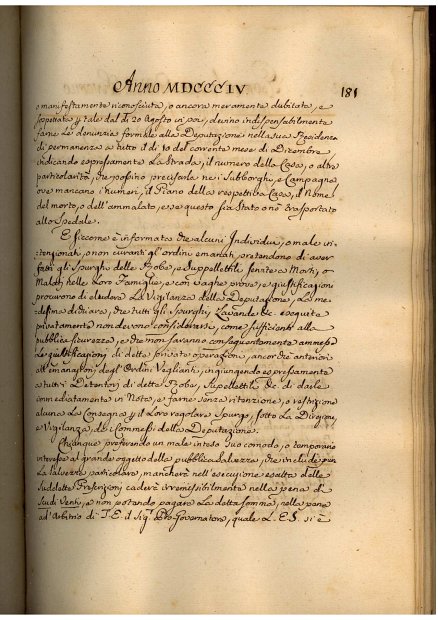 Anno MDCCCIV 181
o manifestamente riconosciuta, o ancora meramente dubitata, e
sospettata p tale dal dì 20 Agosto in poi, devino indispensabilmente
farne la denunzia formale alla Deputazione nella sua Residenza
di permanenza a tutto il dì 10 del corrente mese di Dicembre
indicando espressamente La Strada, il numero della Casa, o altre
particolarità, che possino precisarla ne i Subborghi, e Campagna
ove mancano i numeri, il Piano della respettiva Casa, il Nome
del morto, o dell'ammalato, e se questo sia Stato o nò trasportato
allo Spedale.
E siccome è informata che alcuni Individui, o male in-
tenzionati, o non curanti gl'ordini emanati, pretendono di aver
fatti gli Spurghi delle Robe, e Suppellettili servite a Morti, o
Malati nelle Loro Famiglie, e con vaghe prove, e giustificazioni
procurono di eludere La Vigilanza della Deputazione, La me-
desima dichiara, che tutti gli Spurghi, Lavande &c. eseguite
privatamente non devono considerarsi, come sufficienti alla
pubblica sicurezza, e che non saranno conseguentemente ammesse
Le qualificazioni di dette private operazioni, ancorchè anteriori
all'emanazione degl'Ordini Veglianti, ingiungendo espressamente
a tutti i Detentori di dette Robe, Suppellettili &c. di darle
immediatamente in Nota, e farne senza ritenzione, o restrizione
alcuna La Consegna p il Loro regolare Spurgo, sotto La Direzione,
e Vigilanza de i Commessi della Deputazione.
Chiunque preferendo un male inteso suo comodo, o temporario
interesse al grande oggetto della pubblica Salvezza, che include pur
La Salvezza particolare, mancherà nell'esecuzione esatta delle
suddette Prescrizioni caderà irremissibilmente nella pena di
Scudi Venti, e non potendo pagare La detta somma, nella pena
ad'Arbitrio di S. E. il Sig. Pro-Governatore, quale L. E. S. si è